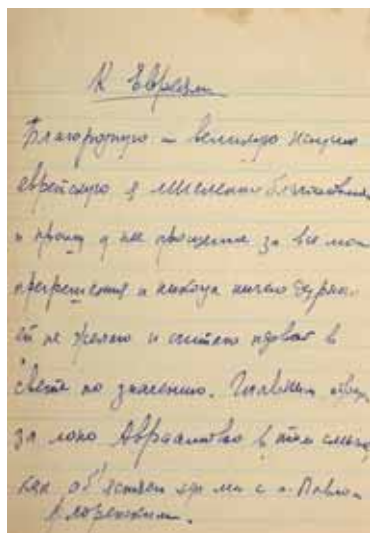 К Евреям
Благородную и великую нацию
еврейскую я мысленно благословляю
и прошу у нее прощения за все мои
прегрешения и никогда ничего дурно-
го не желаю и считаю первой в
свете по значению. Главным образом
за лоно Авраамово в том смысле
как объясняем ей мы с о. Павлом
Флоренским.